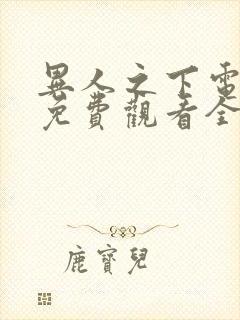 異人之下電
免費觀看全
鹿寶兒